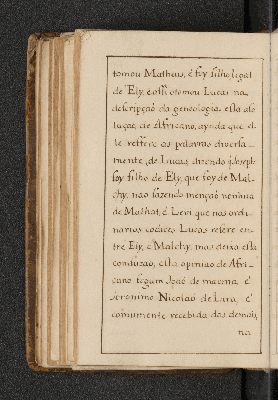 tomou Matheus, é foy filho legal
de Ely, é assi o tomou Lucas na
descripçaõ da geneologia. esta solu
luçaõ, de Africano, aynda que el-
le reffere as palavras diversa-
mente, de Lucas, dizendo q̃ Joseph
foy filho de Ely, que foy de Mal-
chy, naõ fazendo mençaõ nenhũa
de Mathat, é Levi que nas ordi-
narios codices Lucas refere en-
tre Ely, é Malchy. mas deixa esta
confuzaõ, esta opiniaõ de Afri-
cano segum Joaõ de
Jeronimo Nicolao de Lara, é
comumente recebida dos demais,